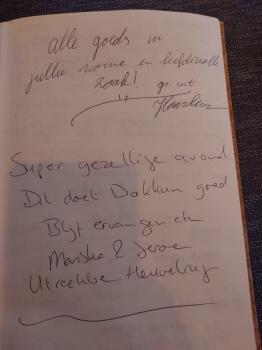 alle goeds in
jullie warme en liefdevolle
zaak! gr. uit
Haarlem
Super gezellige avond
Dit doet Dokkum goed
Blijf ervan genieten
Mariska & Jeroen
Utrechtse Heuvelrug